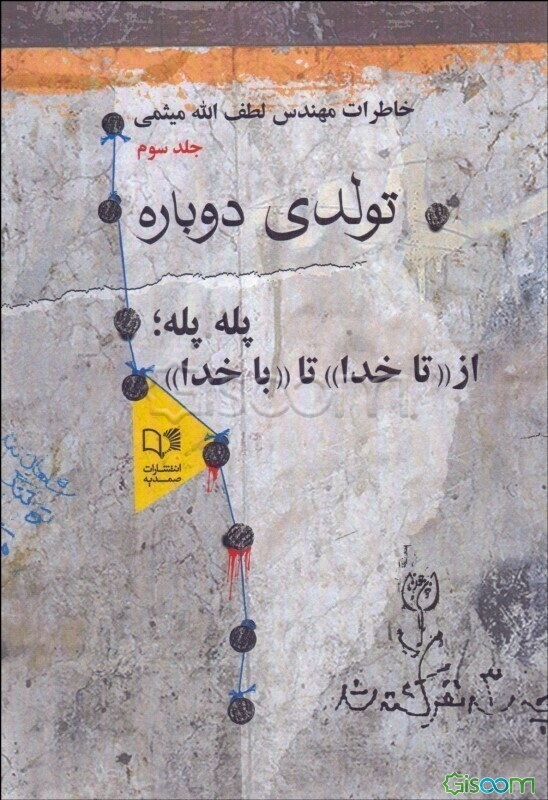 خاطرات مهندس لطف الله میثمی
جلد سوم
تولدی دوباره
پله پله؛
از ((تا خدا)) تا ((با خدا))
انتشارات
صمدیه
نفر کشته شد
Gisoom